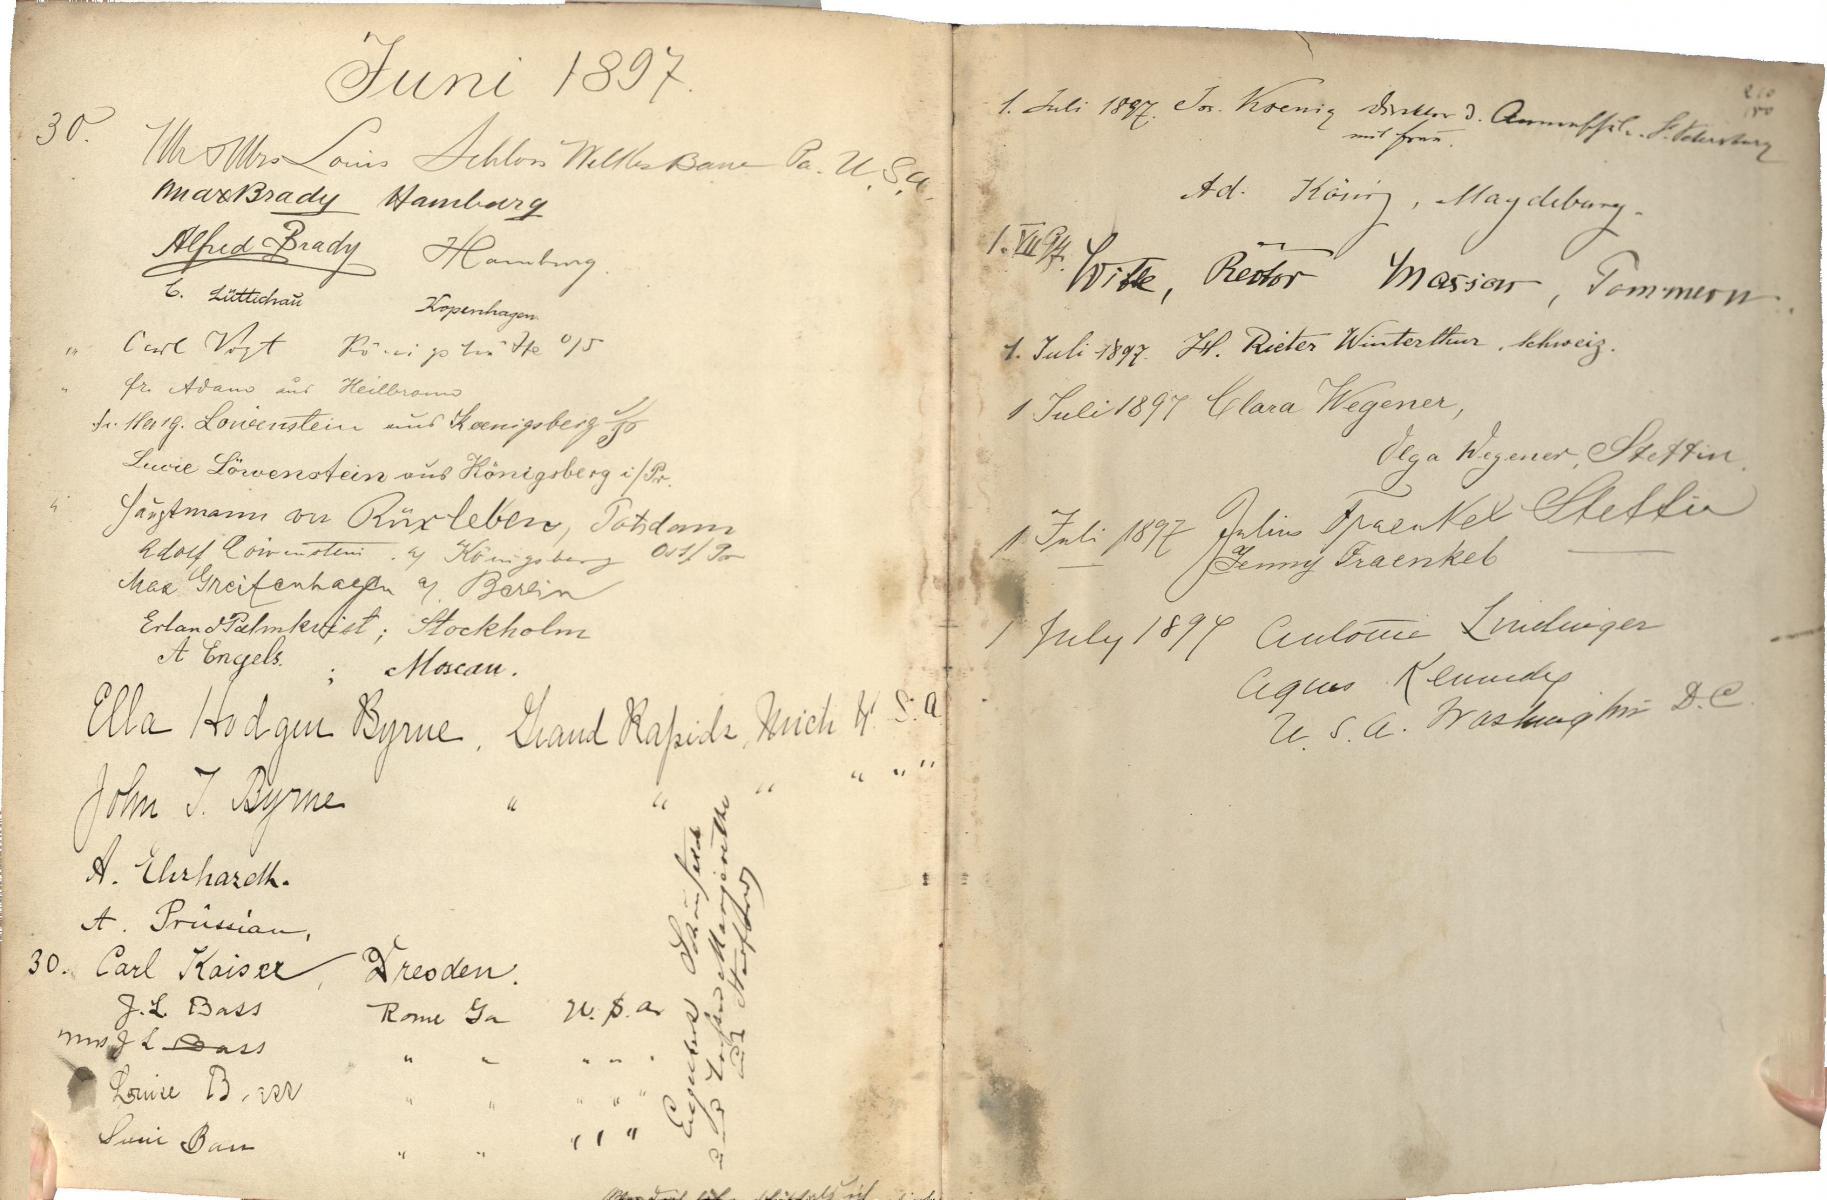 Juni 1897.
30. Mr & Mrs Louis Schloss Wilkes Barre Pa. U.S.A.
Max Brady Hamburg
Alfred Brady Hamburg.
C. Lüttichau Kopenhagen
" Carl Vogt Königshütte O/S
" fr. Adam aus Heilbronn
Löwenstein aus Koenigsberg
Lucie Löwenstein aus Königsberg i/Pr.
" Hauptmann von Rüxleben, Potsdam
Adolf Löwenstein a/ Königsberg Ost/Pr
Max Greifenhagen a/ Berlin
Erland Palmkvist; Stockholm
A Engels. ; Moscau.
Ella Hodgen Byrne, Grand Rapids, Mich U.S.A
John T. Byrne " " " " " "
A. Ehrhardt.
A. Prüssian,
30. Carl Kaiser, Dresden.
J. L. Bass Rome Ga U.S.A.
Mrs J L Bass " " " " "
Louise Bass " " " " "
Bass " " " " "
Engelbert Schönfeld
und Tochter Margarethe
aus
1. Juli 1897. Jos. Koenig Direktor d. St. Petersburg
mit Frau.
Ad. König, Magdeburg.
1. VII 97. Witte, Rector Massow, Pommern.
1. Juli 1897. H. Rieter Winterthur, Schweiz.
1 Juli 1897 Clara Wegener,
Olga Wegener, Stettin.
1 Juli 1897 Julius Fraenkel Stettin
Jenny Fraenkel
1 July 1897 Antonie Lindinger
Agnes Kennedy
U.S.A. Washington D.C.